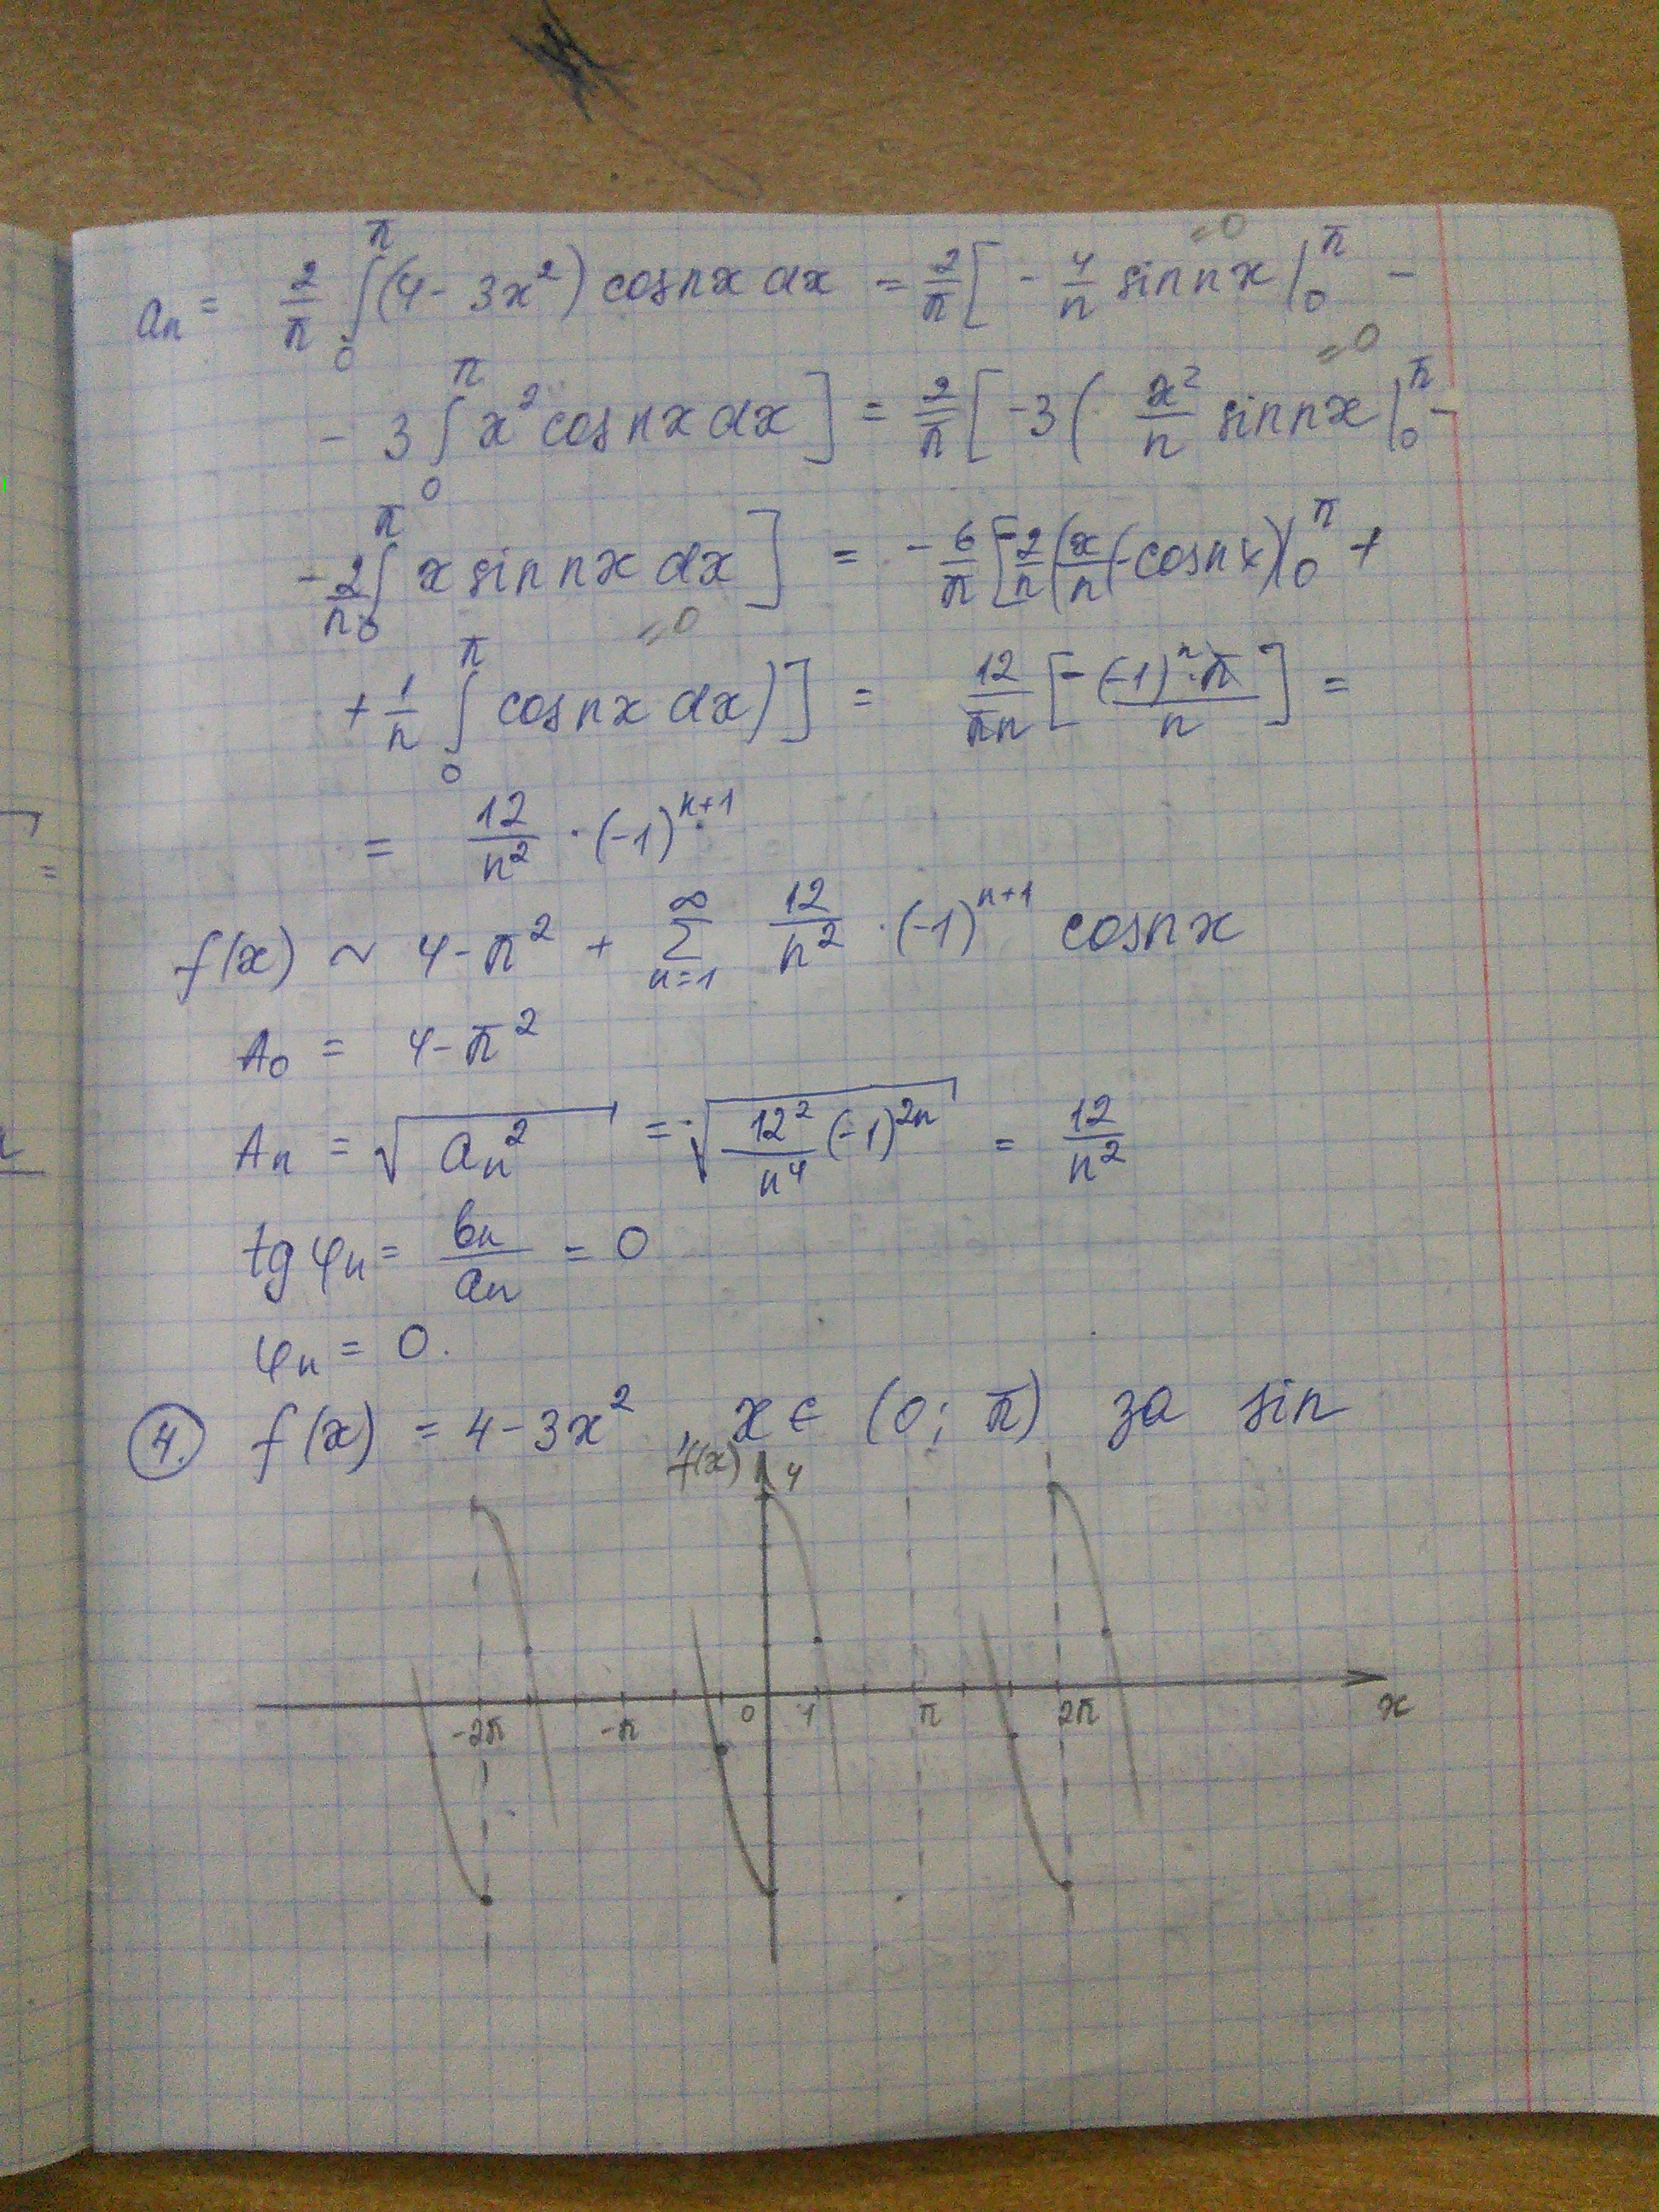 aₙ = 2/π ∫₀^π (4 - 3x²) cosnx dx = 2/π [ - 4/n sin nx |₀^π (=0) -
- 3 ∫₀^π x² cos nx dx ] = 2/π [ -3 ( x²/n sin nx |₀^π (=0) -
- 2/n ∫₀^π x sin nx dx ] = - 6/π [ - 2/n ( x/n (-cosnx) |₀^π +
+ 1/n ∫₀^π cosnx dx ) ] (=0) = 12/πn [ - (-1)ⁿ·π / n ] =
= 12/n² · (-1)ⁿ⁺¹
f(x) ~ 4 - π² + ∑ₙ₌₁^∞ 12/n² · (-1)ⁿ⁺¹ cosnx
A₀ = 4 - π²
Aₙ = √(aₙ²) = √(12²/n⁴ (-1)²ⁿ) = 12/n²
tg φₙ = bₙ/aₙ = 0
φₙ = 0.
4. f(x) = 4 - 3x², x ∈ (0; π) за sin
f(x) 4
-2π -π 0 1 π 2π x